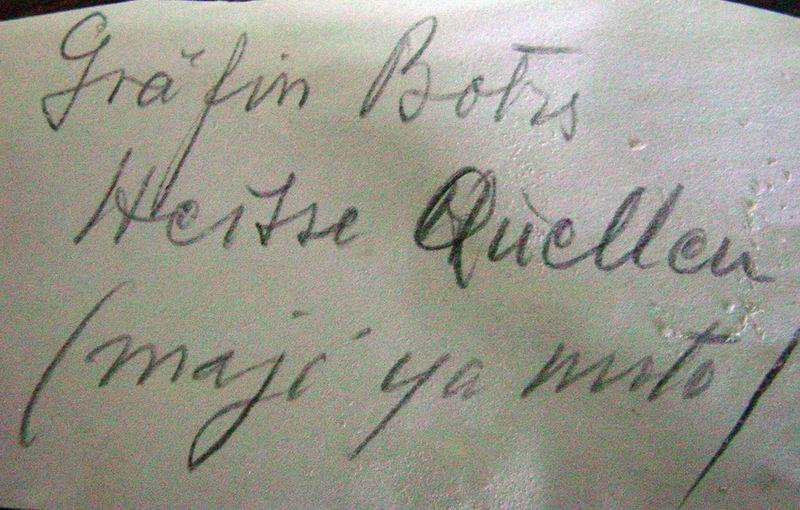 Gräfin Botrs
Heisse Quellen
(maji ya moto)